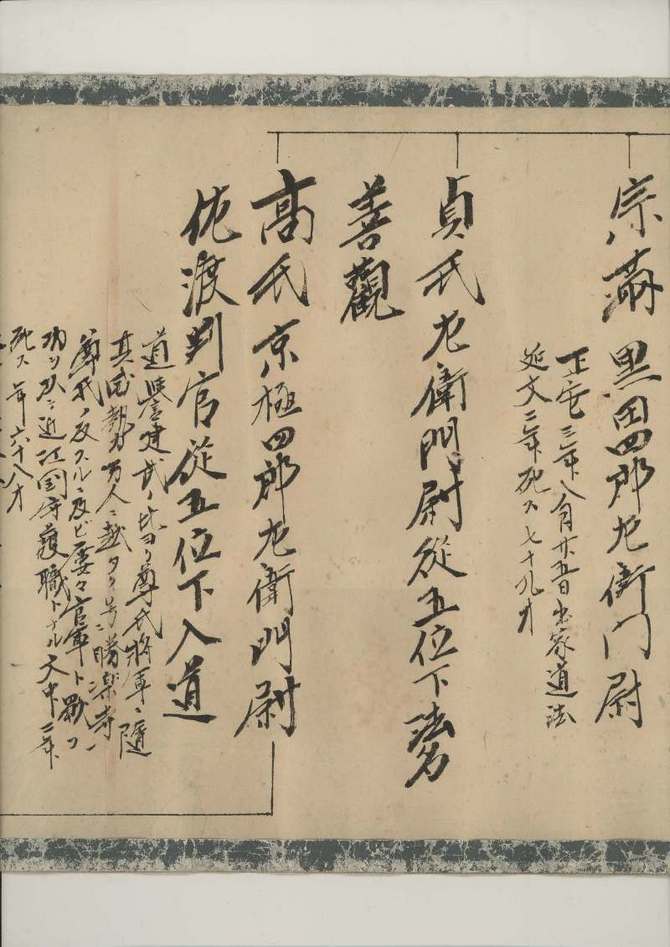 宗満 黒田四郎左衛門尉
正安三年八月廿五日出家道法
延文二年死ス七十九才
貞氏左衛門尉従五位下法名
善觀
高氏京極四郎左衛門尉
佐渡判官従五位下入道
道誉建武ノ比ヨリ尊氏将軍ニ随
其威勢万人ニ越タリ号勝楽寺
尊氏ノ反スルニ及ビ屡々官軍ト戰フ
功ヲ以テ近江国守護職トナル文中二年
死ス年六十八才